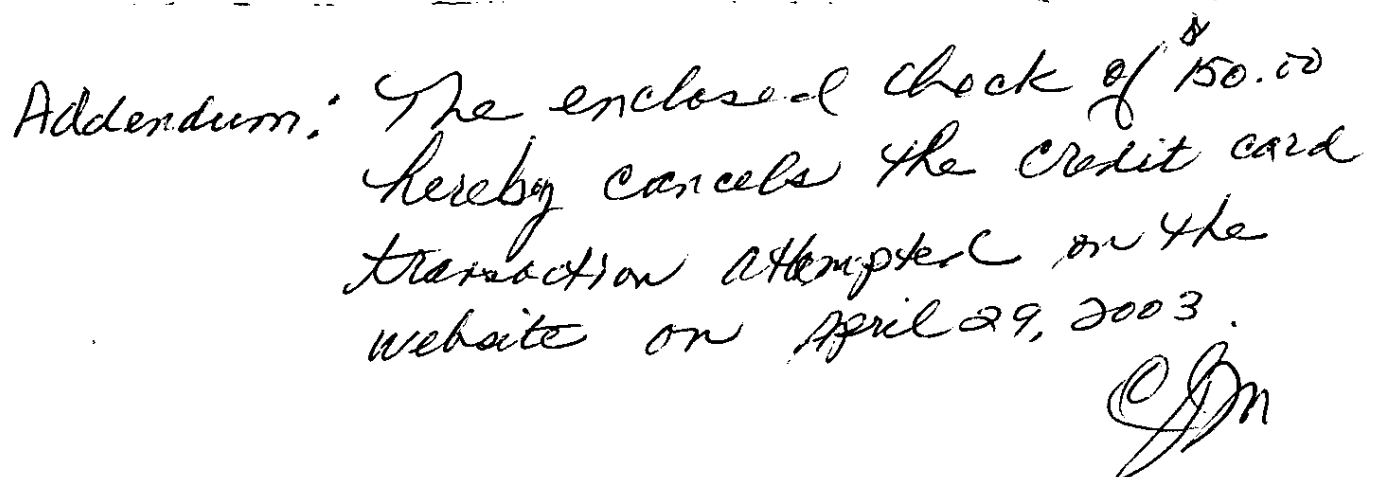 Addendum: The enclosed check of $150.00
hereby cancels the credit card
transaction attempted on the
website on April 29, 2003.